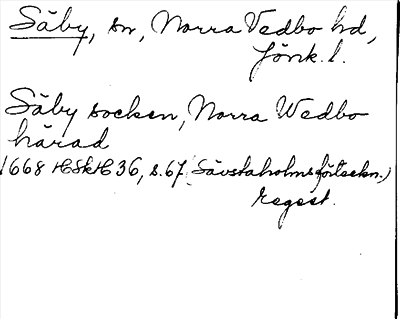 Säby, sn, Norra Vedbo hd,
Jönk. l.
Säby socken, Norra Wedbo
härad
1668 HSkH 36, s. 67 (Sävstaholmsförteckn.)
Regest.